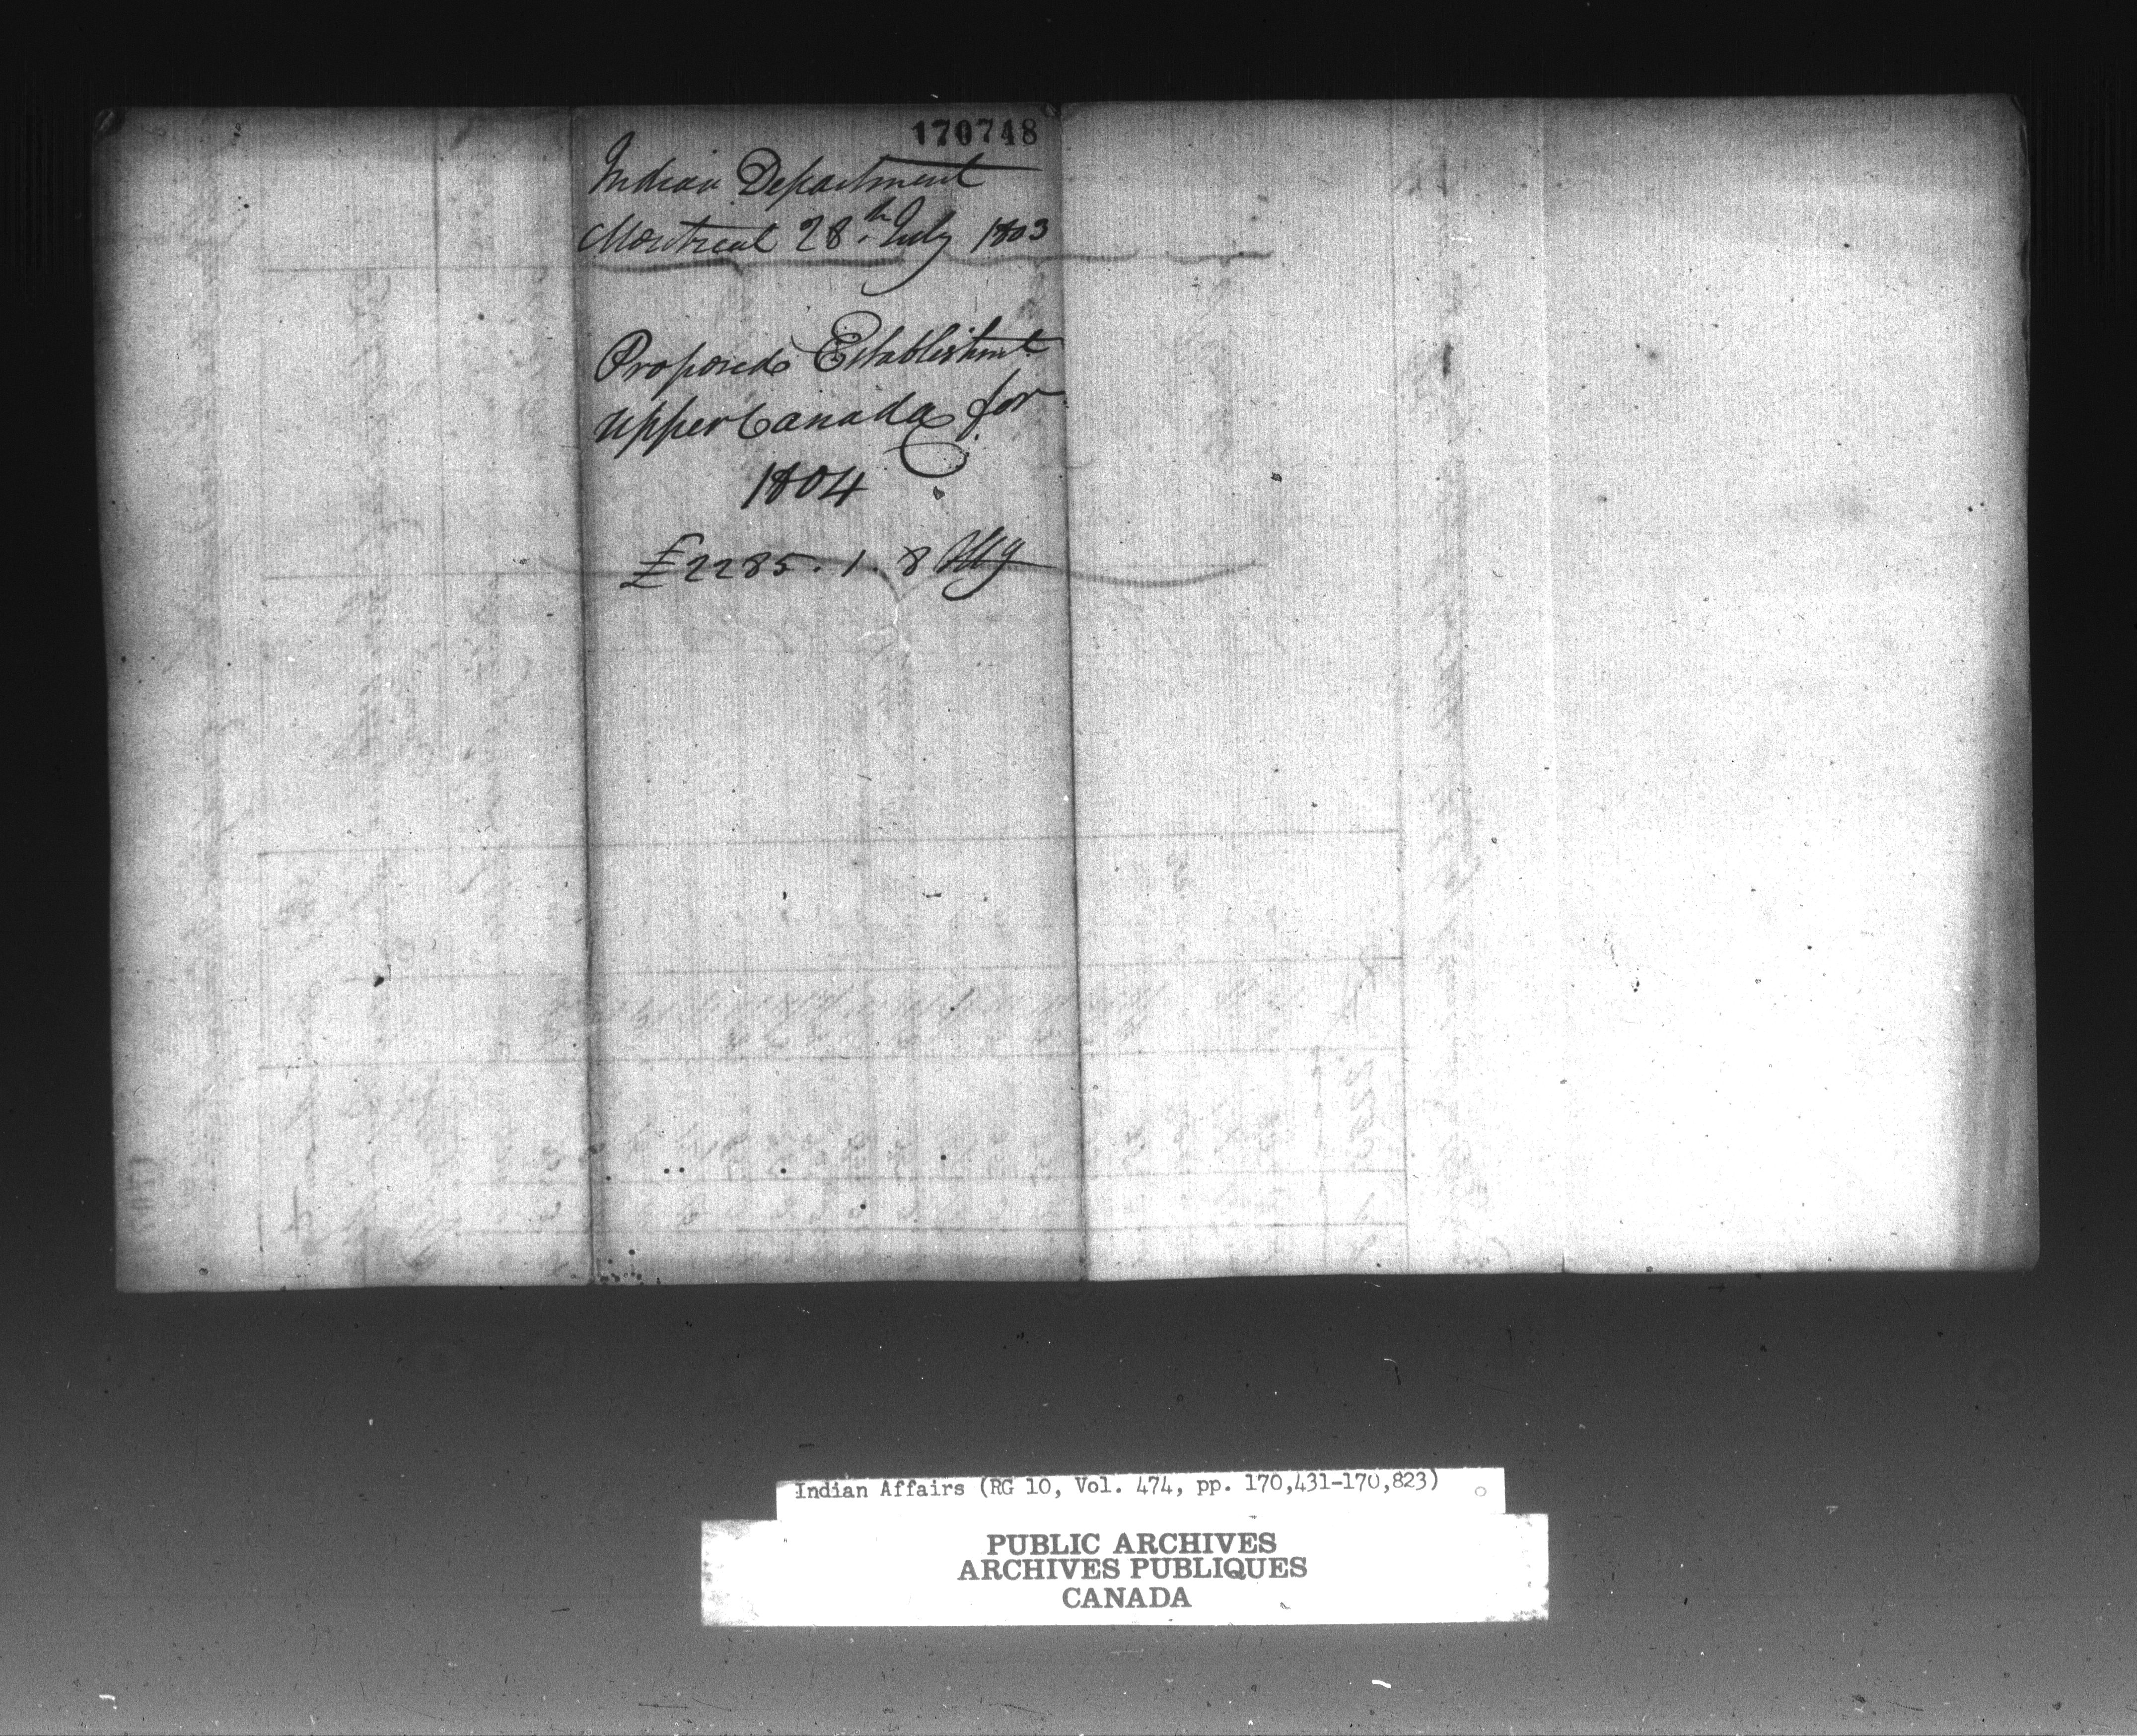 170748
Indian Department
Montreal 28th July 1803
Proposed Establishmt
Upper Canada for
1804
£2285.1.8 Stg
Indian Affairs (RG 10, Vol. 474, pp. 170,431-170,823)
PUBLIC ARCHIVES
ARCHIVES PUBLIQUES
CANADA